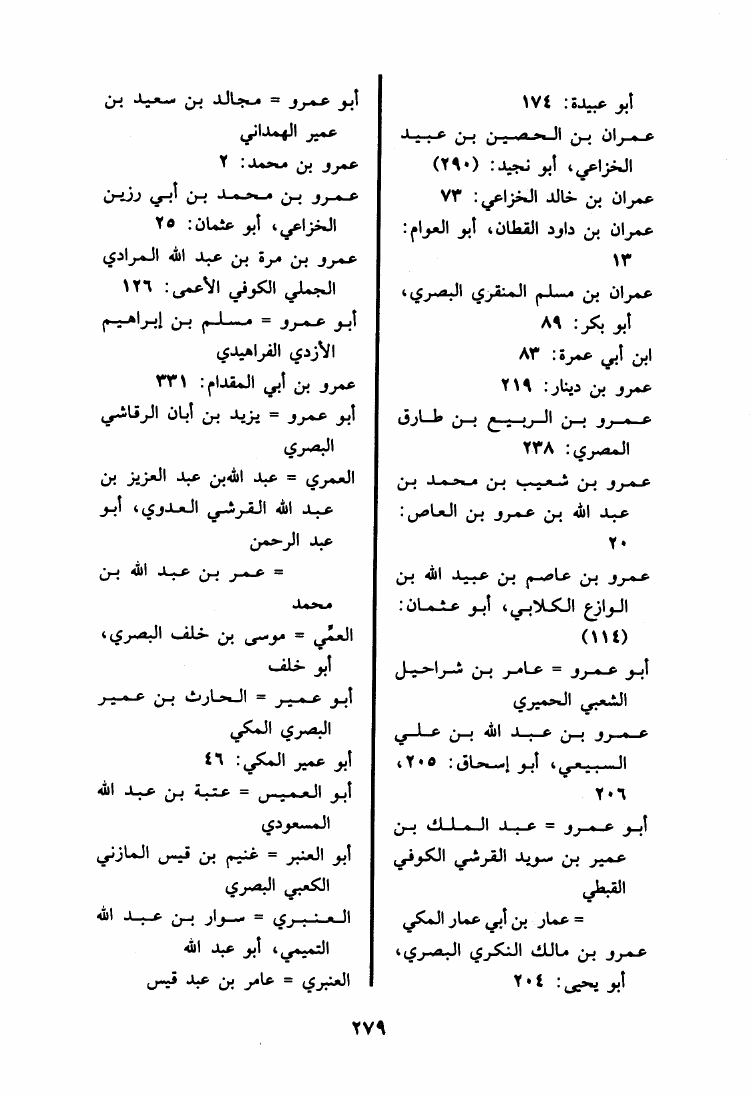 أبو عبيدة: ١٧٤
عمران بن الحصين بن عبيد
الخزاعي، أبو نجيد: (٢٩٠)
عمران بن خالد الخزاعي: ٧٣
عمران بن داود القطان، أبو العوام:
١٣
عمران بن مسلم المنقري البصري،
أبو بكر: ٨٩
ابن أبي عمرة: ٨٣
عمرو بن دينار: ٢١٩
عمرو بن الربيع بن طارق
المصري: ٢٣٨
عمرو بن شعيب بن محمد بن
عبد الله بن عمرو بن العاص:
٢٠
عمرو بن عاصم بن عبيد الله بن
الوازع الكلابي، أبو عثمان:
(١١٤)
أبو عمرو = عامر بن شراحيل
الشعبي الحميري
عمرو بن عبد الله بن علي
السبيعي، أبو إسحاق: ٢٠٥،
٢٠٦
أبو عمرو = عبد الملك بن
عمير بن سويد القرشي الكوفي
القبطي
= عمار بن أبي عمار المكي
عمرو بن مالك النكري البصري،
أبو يحيى: ٢٠٤
أبو عمرو = مجالد بن سعيد بن
عمير الهمداني
عمرو بن محمد: ٢
عمرو بن محمد بن أبي رزين
الخزاعي، أبو عثمان: ٢٥
عمرو بن مرة بن عبد الله المرادي
الجملي الكوفي الأعمى: ١٢٦
أبو عمرو = مسلم بن إبراهيم
الأزدي الفراهيدي
عمرو بن أبي المقدام: ٣٣١
أبو عمرو = يزيد بن أبان الرقاشي
البصري
العمري = عبد الله بن عبد العزيز بن
عبد الله القرشي العدوي، أبو
عبد الرحمن
= عمر بن عبد الله بن
محمد
العمِّي = موسى بن خلف البصري،
أبو خلف
أبو عمير = الحارث بن عمير
البصري المكي
أبو عمير المكي: ٤٦
أبو العميس = عتبة بن عبد الله
المسعودي
أبو العنبر = غنيم بن قيس المازني
الكعبي البصري
العنبري = سوار بن عبد الله
التميمي، أبو عبد الله
العنبري = عامر بن عبد قيس
٢٧٩